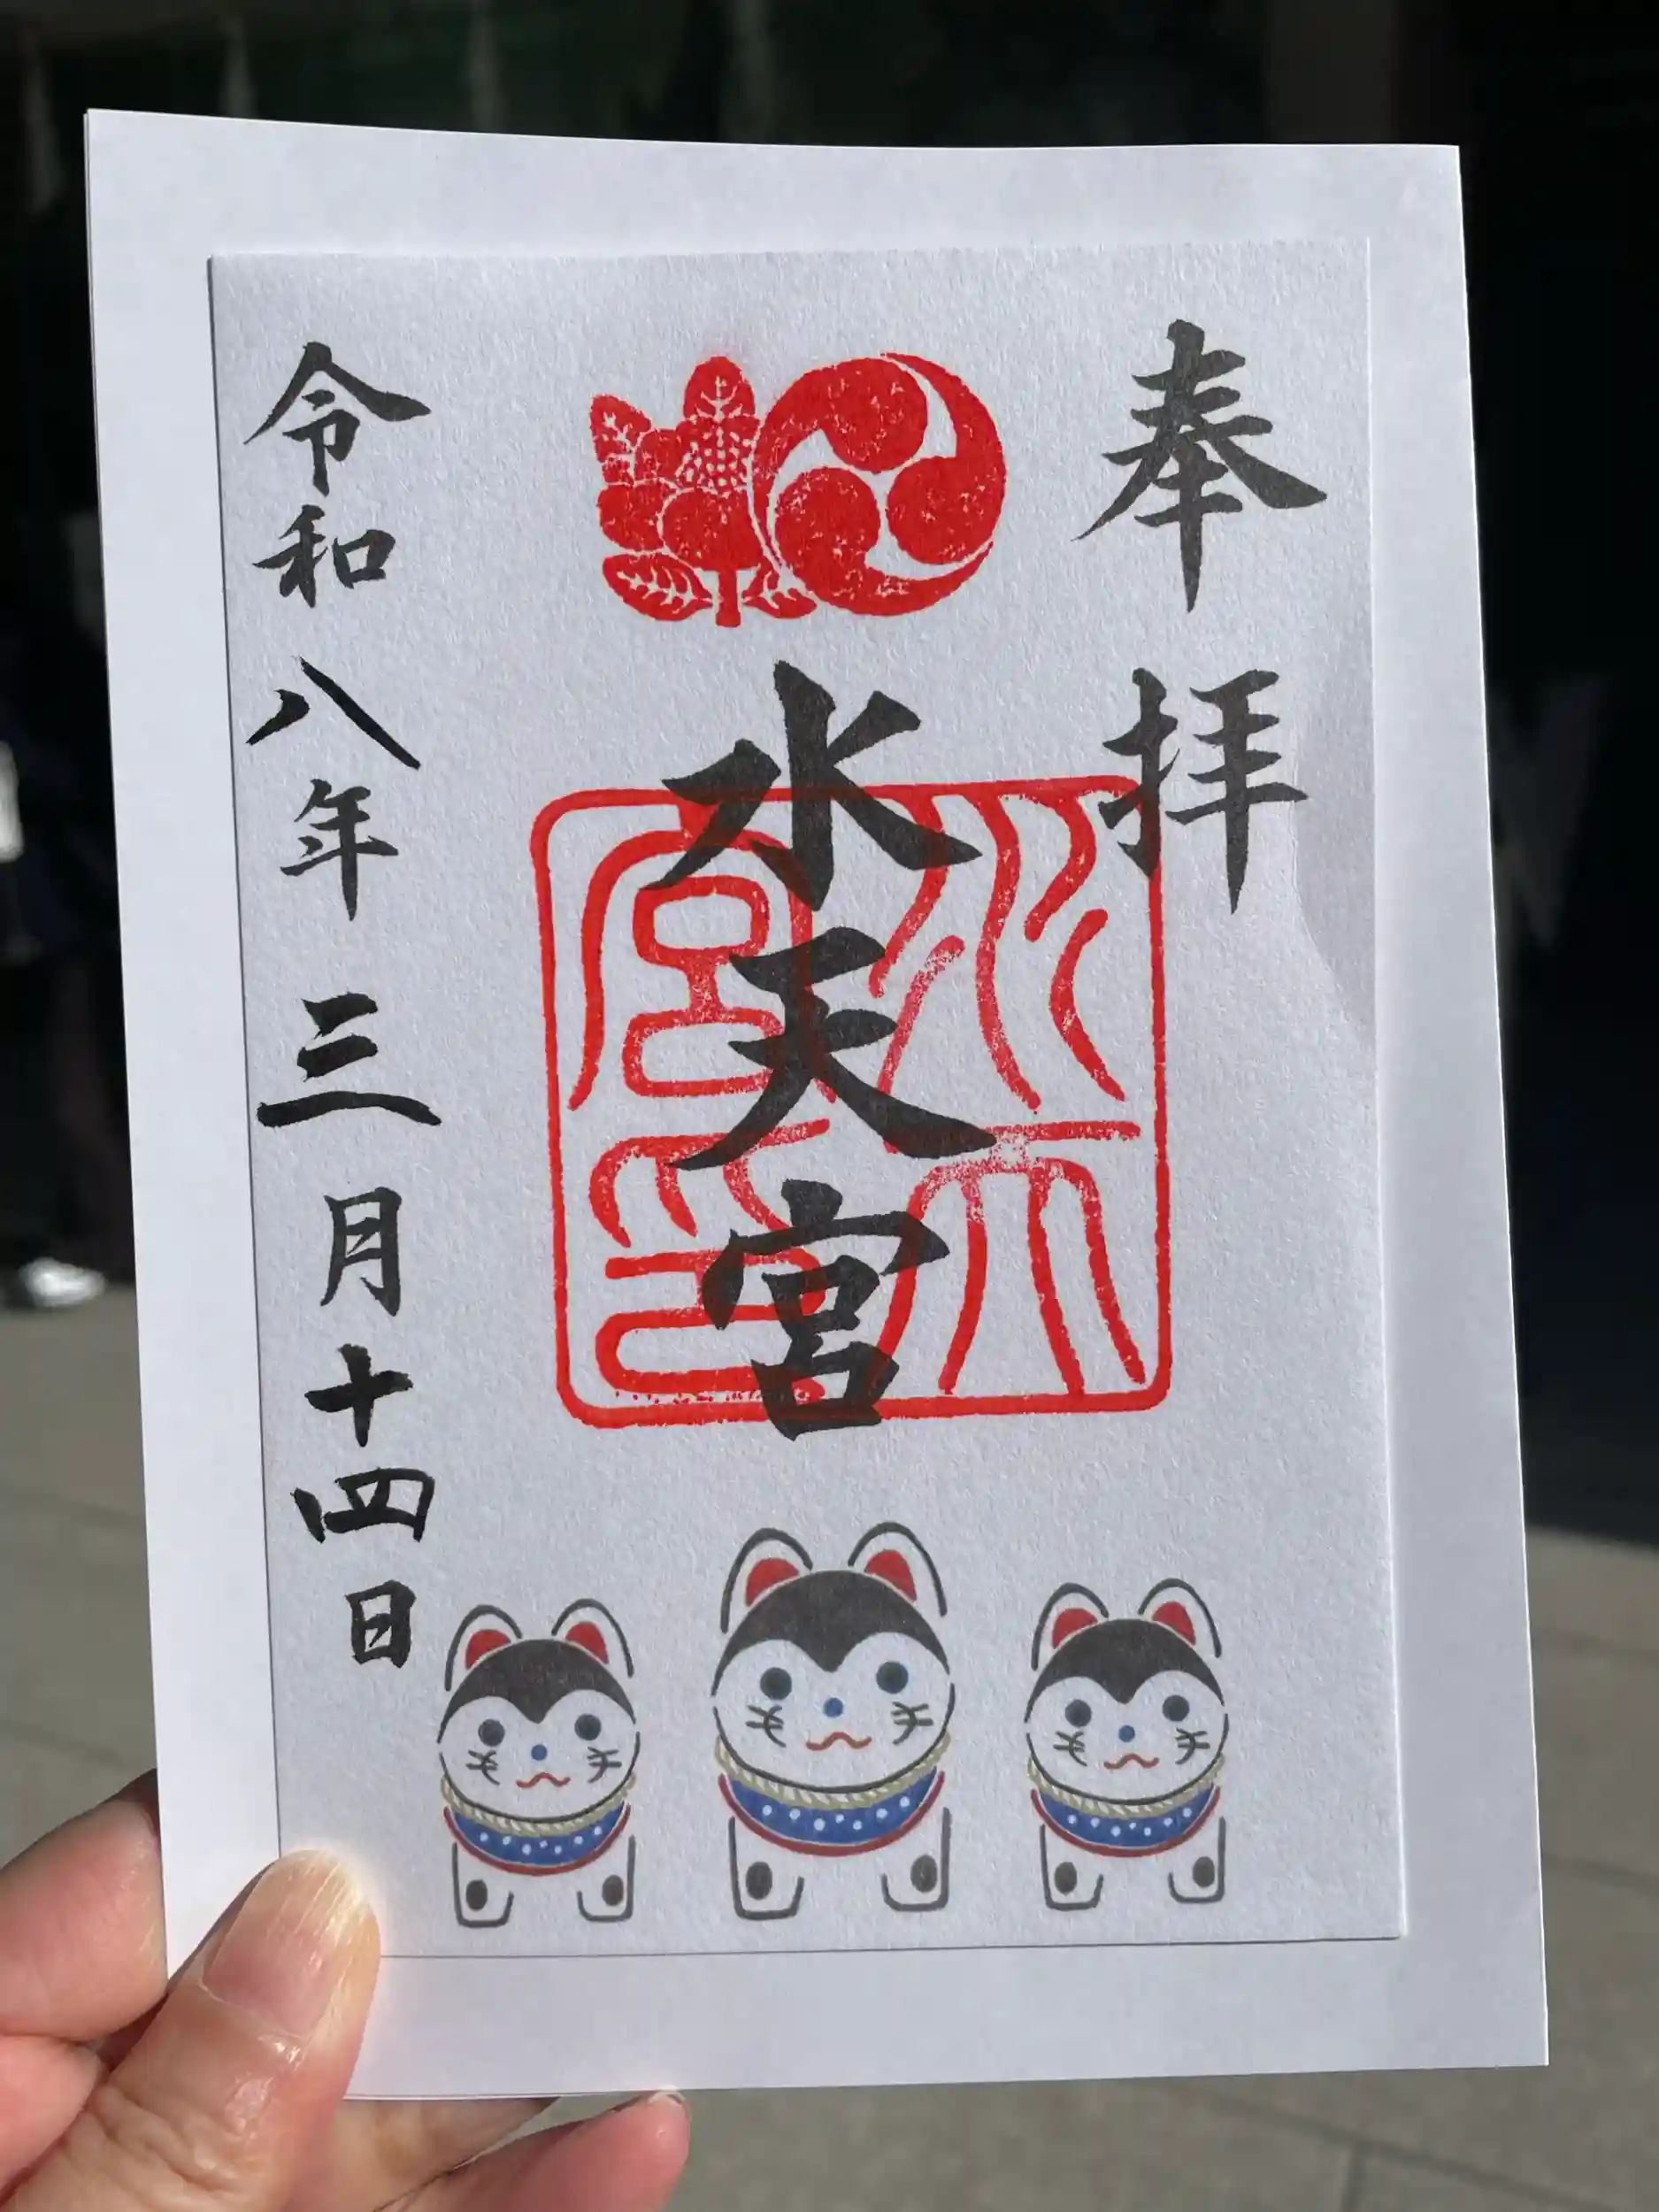 奉拝
水天宮
水天宮印
令和八年三月十四日